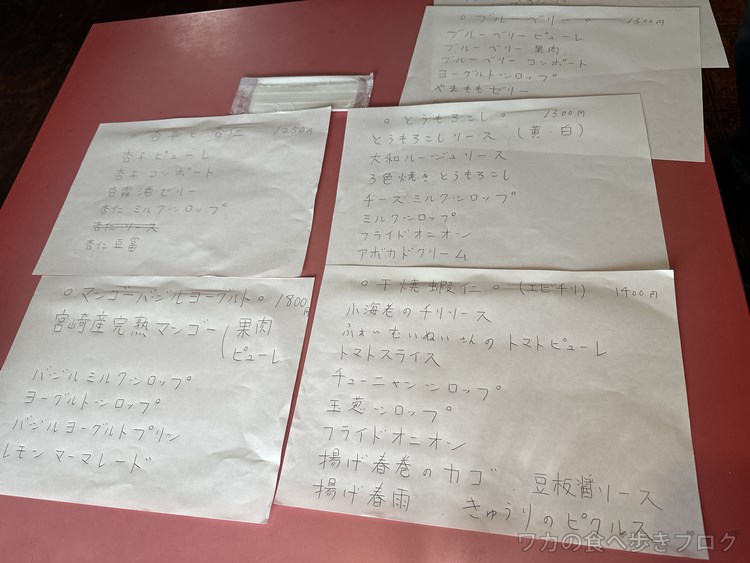 ○ ブルーベリー ○ 1300円
ブルーベリー ピューレ
ブルーベリー 果肉
ブルーベリー コンポート
ヨーグルトシロップ
やまももゼリー
杏子と杏仁 1250円
杏子ピューレ
杏子コンポート
杏露酒ゼリー
杏仁ミルクシロップ
杏仁ソース
杏仁豆冨
○ とうもろこし ○ 1300円
とうもろこしソース (黄・白)
大和ルージュソース
3色焼きとうもろこし
チーズミルクシロップ
ミルクシロップ
フライドオニオン
アボカドクリーム
○ マンゴーバジルヨーグルト ○ 1800円
宮崎産完熟マンゴー(果肉
ピューレ
バジルミルクシロップ
ヨーグルトシロップ
バジルヨーグルトプリン
レモンマーマレード
○ 干焼蝦仁 ○ (エビチリ) 1400円
小海老のチリソース
ふぁいむいねいさんのトマトピューレ
トマトスライス
チューニャンシロップ
玉葱シロップ
フライドオニオン
揚げ春巻のカゴ 豆板醤ソース
揚げ春雨 きゅうりのピクルス
ワカの食べ歩きブログ